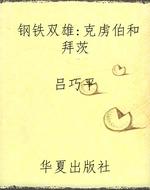 钢铁双雄:克虏伯和
拜茨
吕巧平
华夏出版社